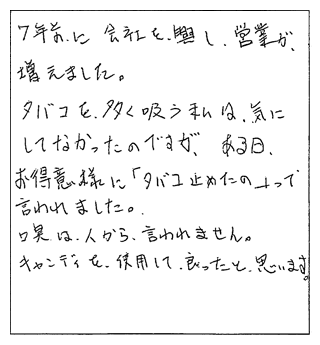 7年前に 会社を、興し、営業が、
増えました。
タバコを、多く吸う私は、気に
してなかったのですが、ある日、
お得意様に「タバコ止めたの」って
言われました。
口臭は、人から、言われません。
キャンディを、使用して、良ったと、思います。